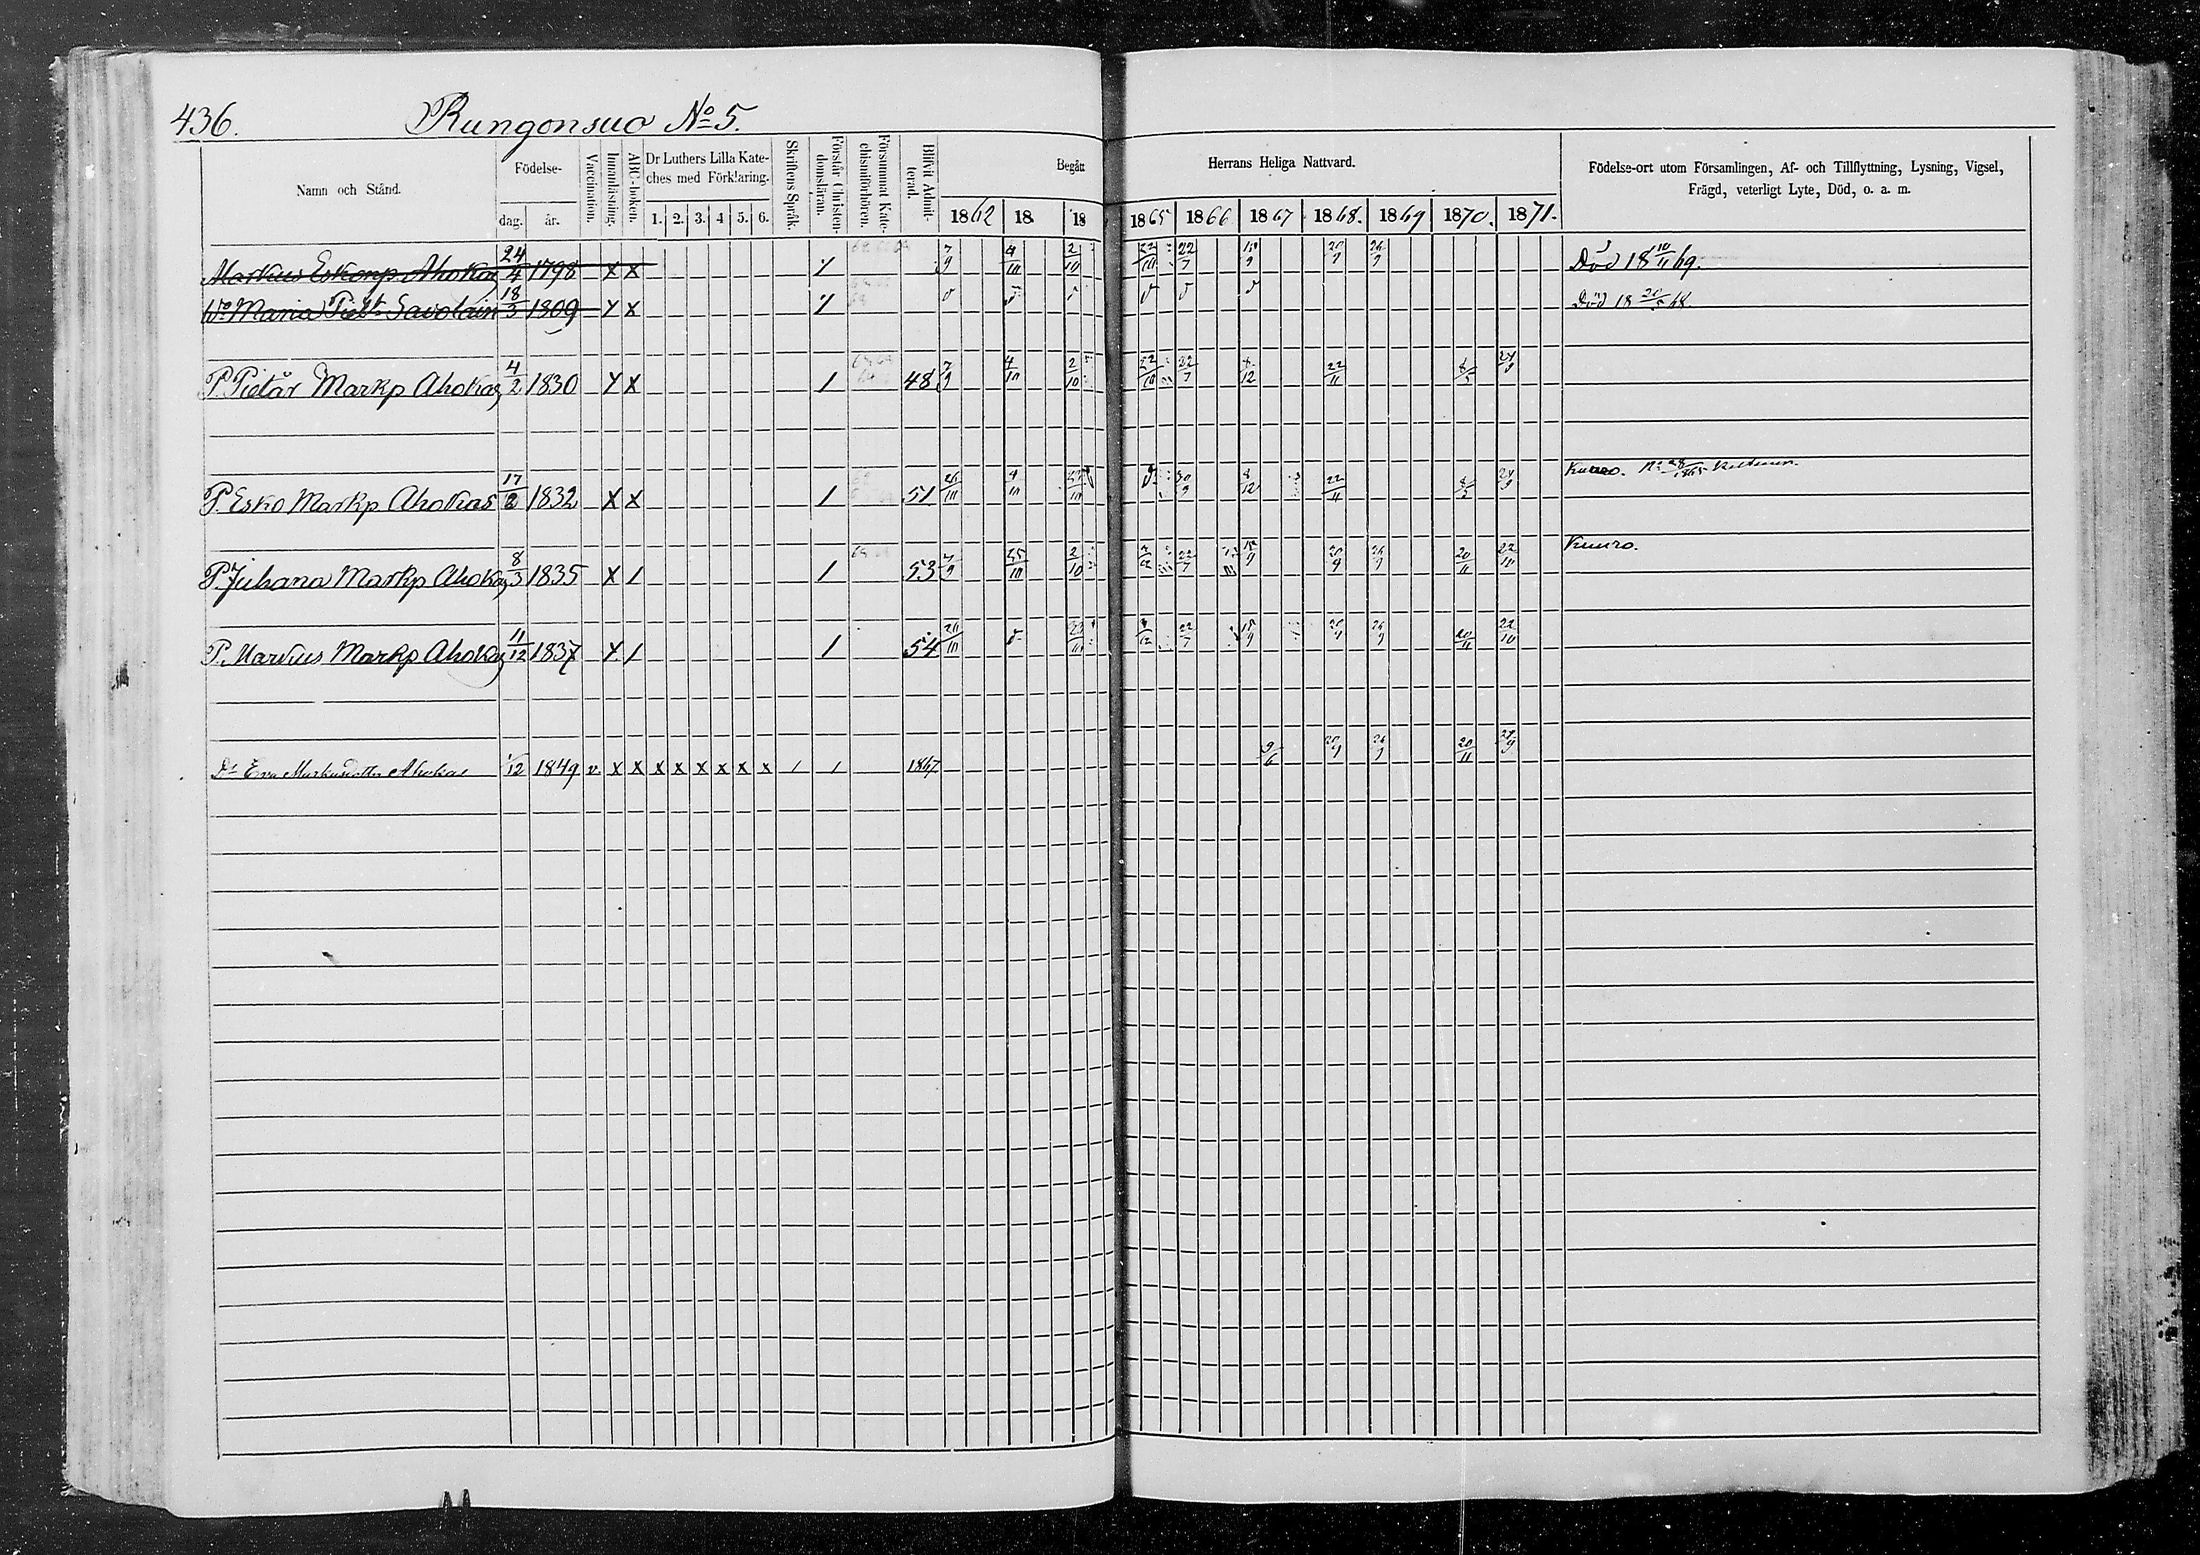 436. Rungonsuo No 5.
Namn och Stånd. Födelse- dag. år. Vaccination. Innanläsning. ABC-boken. Dr Luthers Lilla Kateches med Förklaring. 1. 2. 3. 4 5. 6. Skriftens Språk. Förstår Christendomsläran. Försummat Katechismiförhören. Blifvit Admitterad. Begått Herrans Heliga Nattvard. Födelse-ort utom Församlingen, Af- och Tillflyttning, Lysning, Vigsel, Frägd, veterligt Lyte, Död, o. a. m.
1862 18 18 1865 1866 1867 1868. 1869 1870. 1871.
Markus Eskonp Ahokas 24/4 1798 X X 7/9 4/10 2/10 22/10 22/7 15/9 20/9 26/9 Död 18 10/11 69.
Ho Maria Piet. Savolain 18/3 1809 Y X Död 18 68
P. Pietår Markp Ahokas 4/2 1830 Y X 1 48 7/9 4/10 2/10 22/10 22/7 8/12 22/11 8/5 24/9
P. Esko Markp. Ahokas 17/2 1832 X X 1 51 26/10 4/10 30/9 8/12 22/11 8/5 24/9 28/1865
P. Juhana Markp Ahokas 8/3 1835 X 1 1 53 7/9 25/10 2/10 22/7 15/9 20/9 26/9 20/11 22/10 Kuuro.
P. Markus Markp Ahokas 11/12 1837 X 1 1 54 26/10 22/7 15/9 20/9 26/9 20/11 22/10
Dr Eva Markusdotter Ahokas 1/12 1849 v. X X X X X X X X 1 1 1867 9/6 20/9 26/9 20/11 24/9